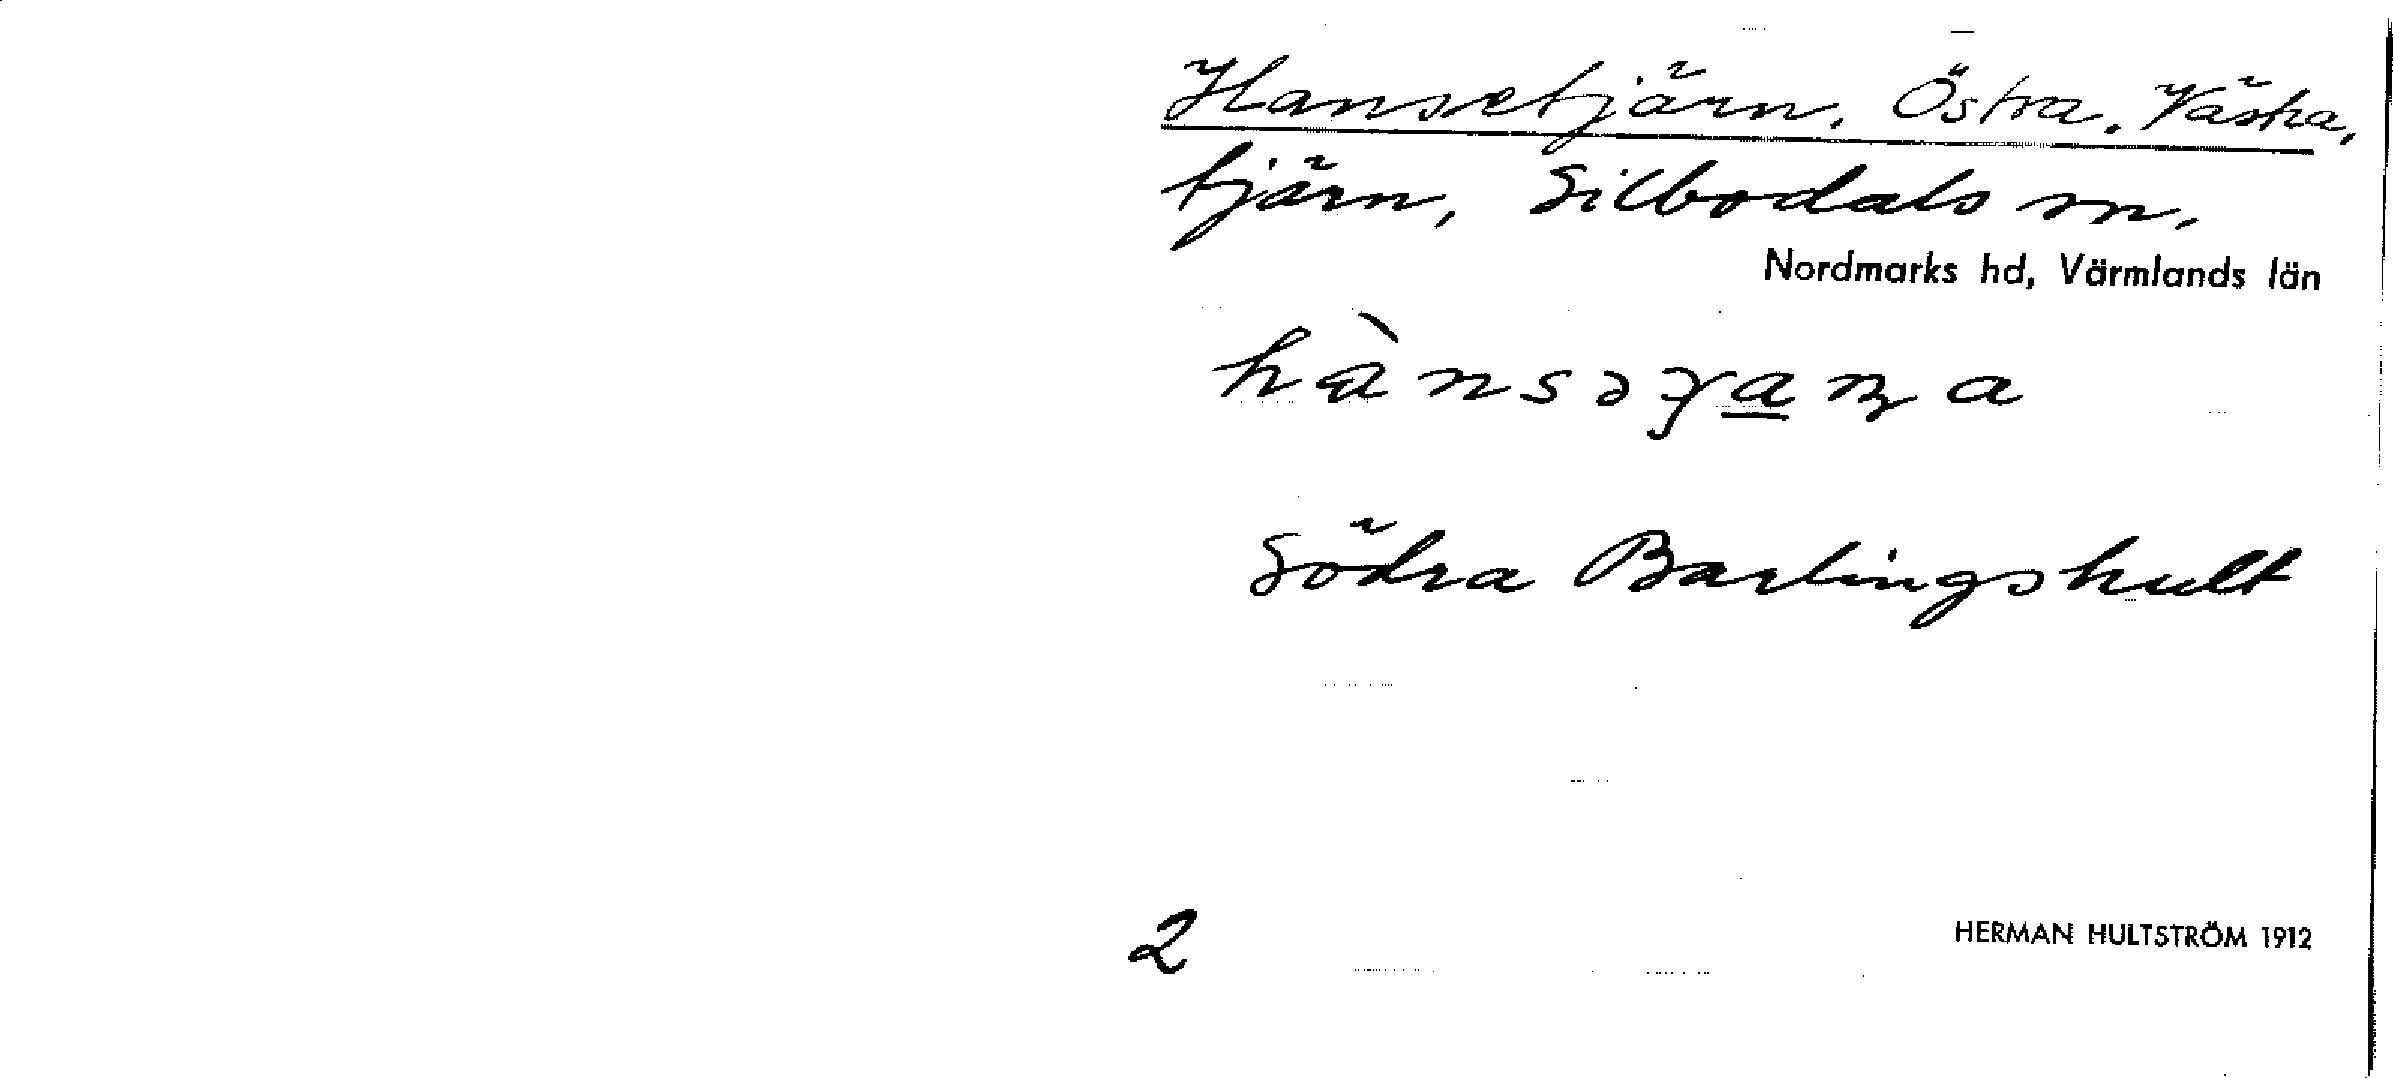 Hansetjärn, Östra, Västra,
tjärn, Silbodals sn,
Nordmarks hd, Värmlands län
Södra Barlingshult
2
HERMAN HULTSTRÖM 1912